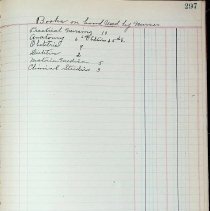 297
Books on hand used by Nurses
Practical Nursing 10
Anatomy 6
Obstetrical 9
Dietetics 2
Materia Medica 5
Clinical Studies 3